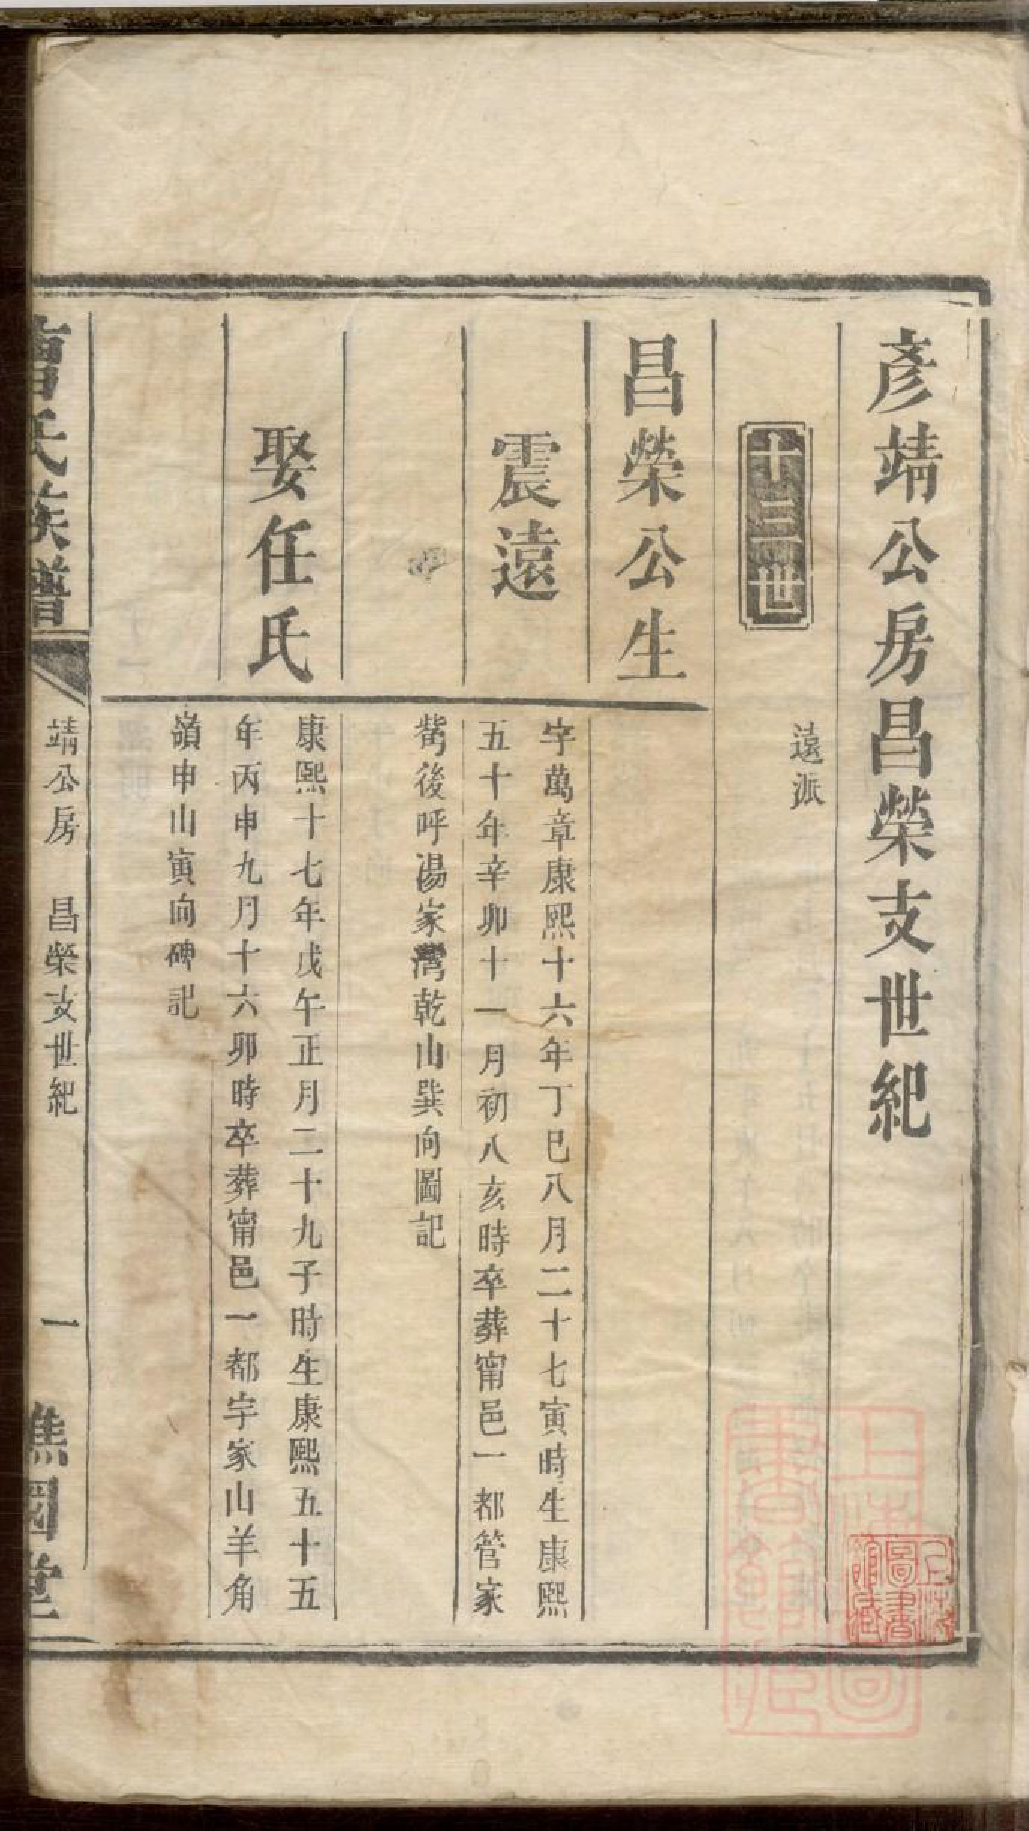 彥靖公房昌榮支世紀
遠派
十三世
昌榮公生
震遠
字萬章康熙十六年丁巳八月二十七寅時生康熙
五十年辛卯十一月初八亥時卒葬甯邑一都管家
後呼湯家灣乾山巽向圖記
娶任氏
康熙十七年戊午正月二十九子時生康熙五十五
年丙申九月十六卯時卒葬甯邑一都宇家山羊角
嶺申山寅向碑記
曹氏族譜
靖公房 昌榮支世紀
一
譙國堂
上海圖書館藏
上海圖書館藏